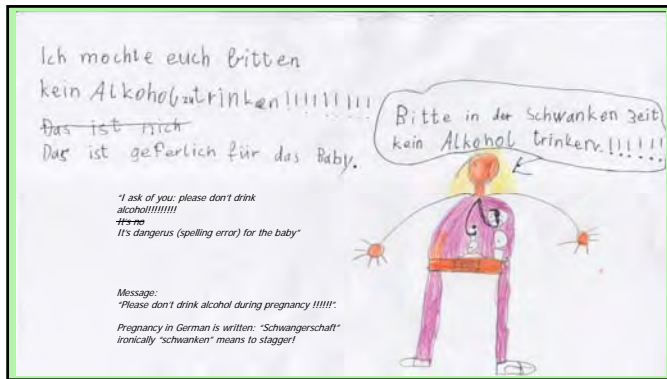 Ich mochte euch bitten
kein Alkohol zu trinken!!!!!!!!!
Das ist nich
Das ist geferlich für das Baby.
Bitte in der Schwanken Zeit
kein Alkohol trinken.!!!!!!
"I ask of you: please don't drink
alcohol!!!!!!!!!
It's no
It's dangerus (spelling error) for the baby"
Message:
"Please don't drink alcohol during pregnancy !!!!!!".
Pregnancy in German is written: "Schwangerschaft"
ironically "schwanken" means to stagger!